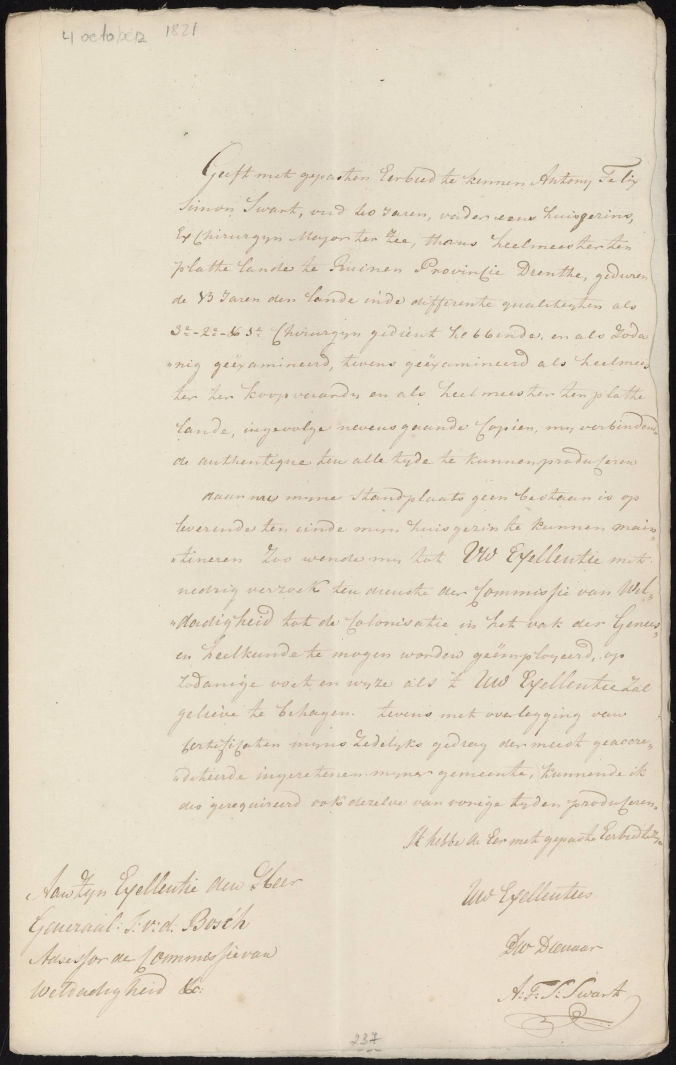 4 october 1821
Geeft met gepasten Eerbied te kennen Antony Felix
Simon Swart, oud 40 Jaren, vader eens huisgezins,
Ex Chirurgyn Mayor ter Zee, thans heelmeester ten
platte lande te Ruinen Provinçie Drenthe, geduren
de 13 Jaren den lande in de differente qualiteyten als
3e-2e-& 1e Chirurgyn gedient hebbende, en als Zoda
nig geëxamineerd, tevens geëxamineerd als heelmees
ter ter koopvaardy en als heelmeester ten platte
lande, ingevolge nevensgaande Copien, my verbindend
de authentique ten alle tyde te kunnen produçeren
daar nu myne standplaats geen bestaan is op
leverende ten einde myn huisgezin te kunnen main,,
,,tineren Zoo wende my tot UW Exellentie met
nedrig verzoek ten dienste der Commissie van Wel,,
,,dadigheid tot de Colonisatie in het vak der Genees,,
en heelkunde te mogen worden geëmployeerd, op
Zodanige voet en wyze als 't UW Exellentie Zal
gelieve te behagen. tevens met overlegging van
Certifiçaten myns Zedelyks gedrag der meest geacore,,
,,diteerde ingezetenen myner gemeente, kunnende ik
dis gerequireerd ook dezelve van vorige tyden produçeren.
Ik hebbe de Eer met gepaste Eerbied te Zyn
UW Exellenties
Dw Dienaar
A: F: S: Swart
Aan Zyn Exellentie den Heer
Generaal: J: v: d: Bosch
Adsessor der Commissie van
Weldadigheid &c:
237